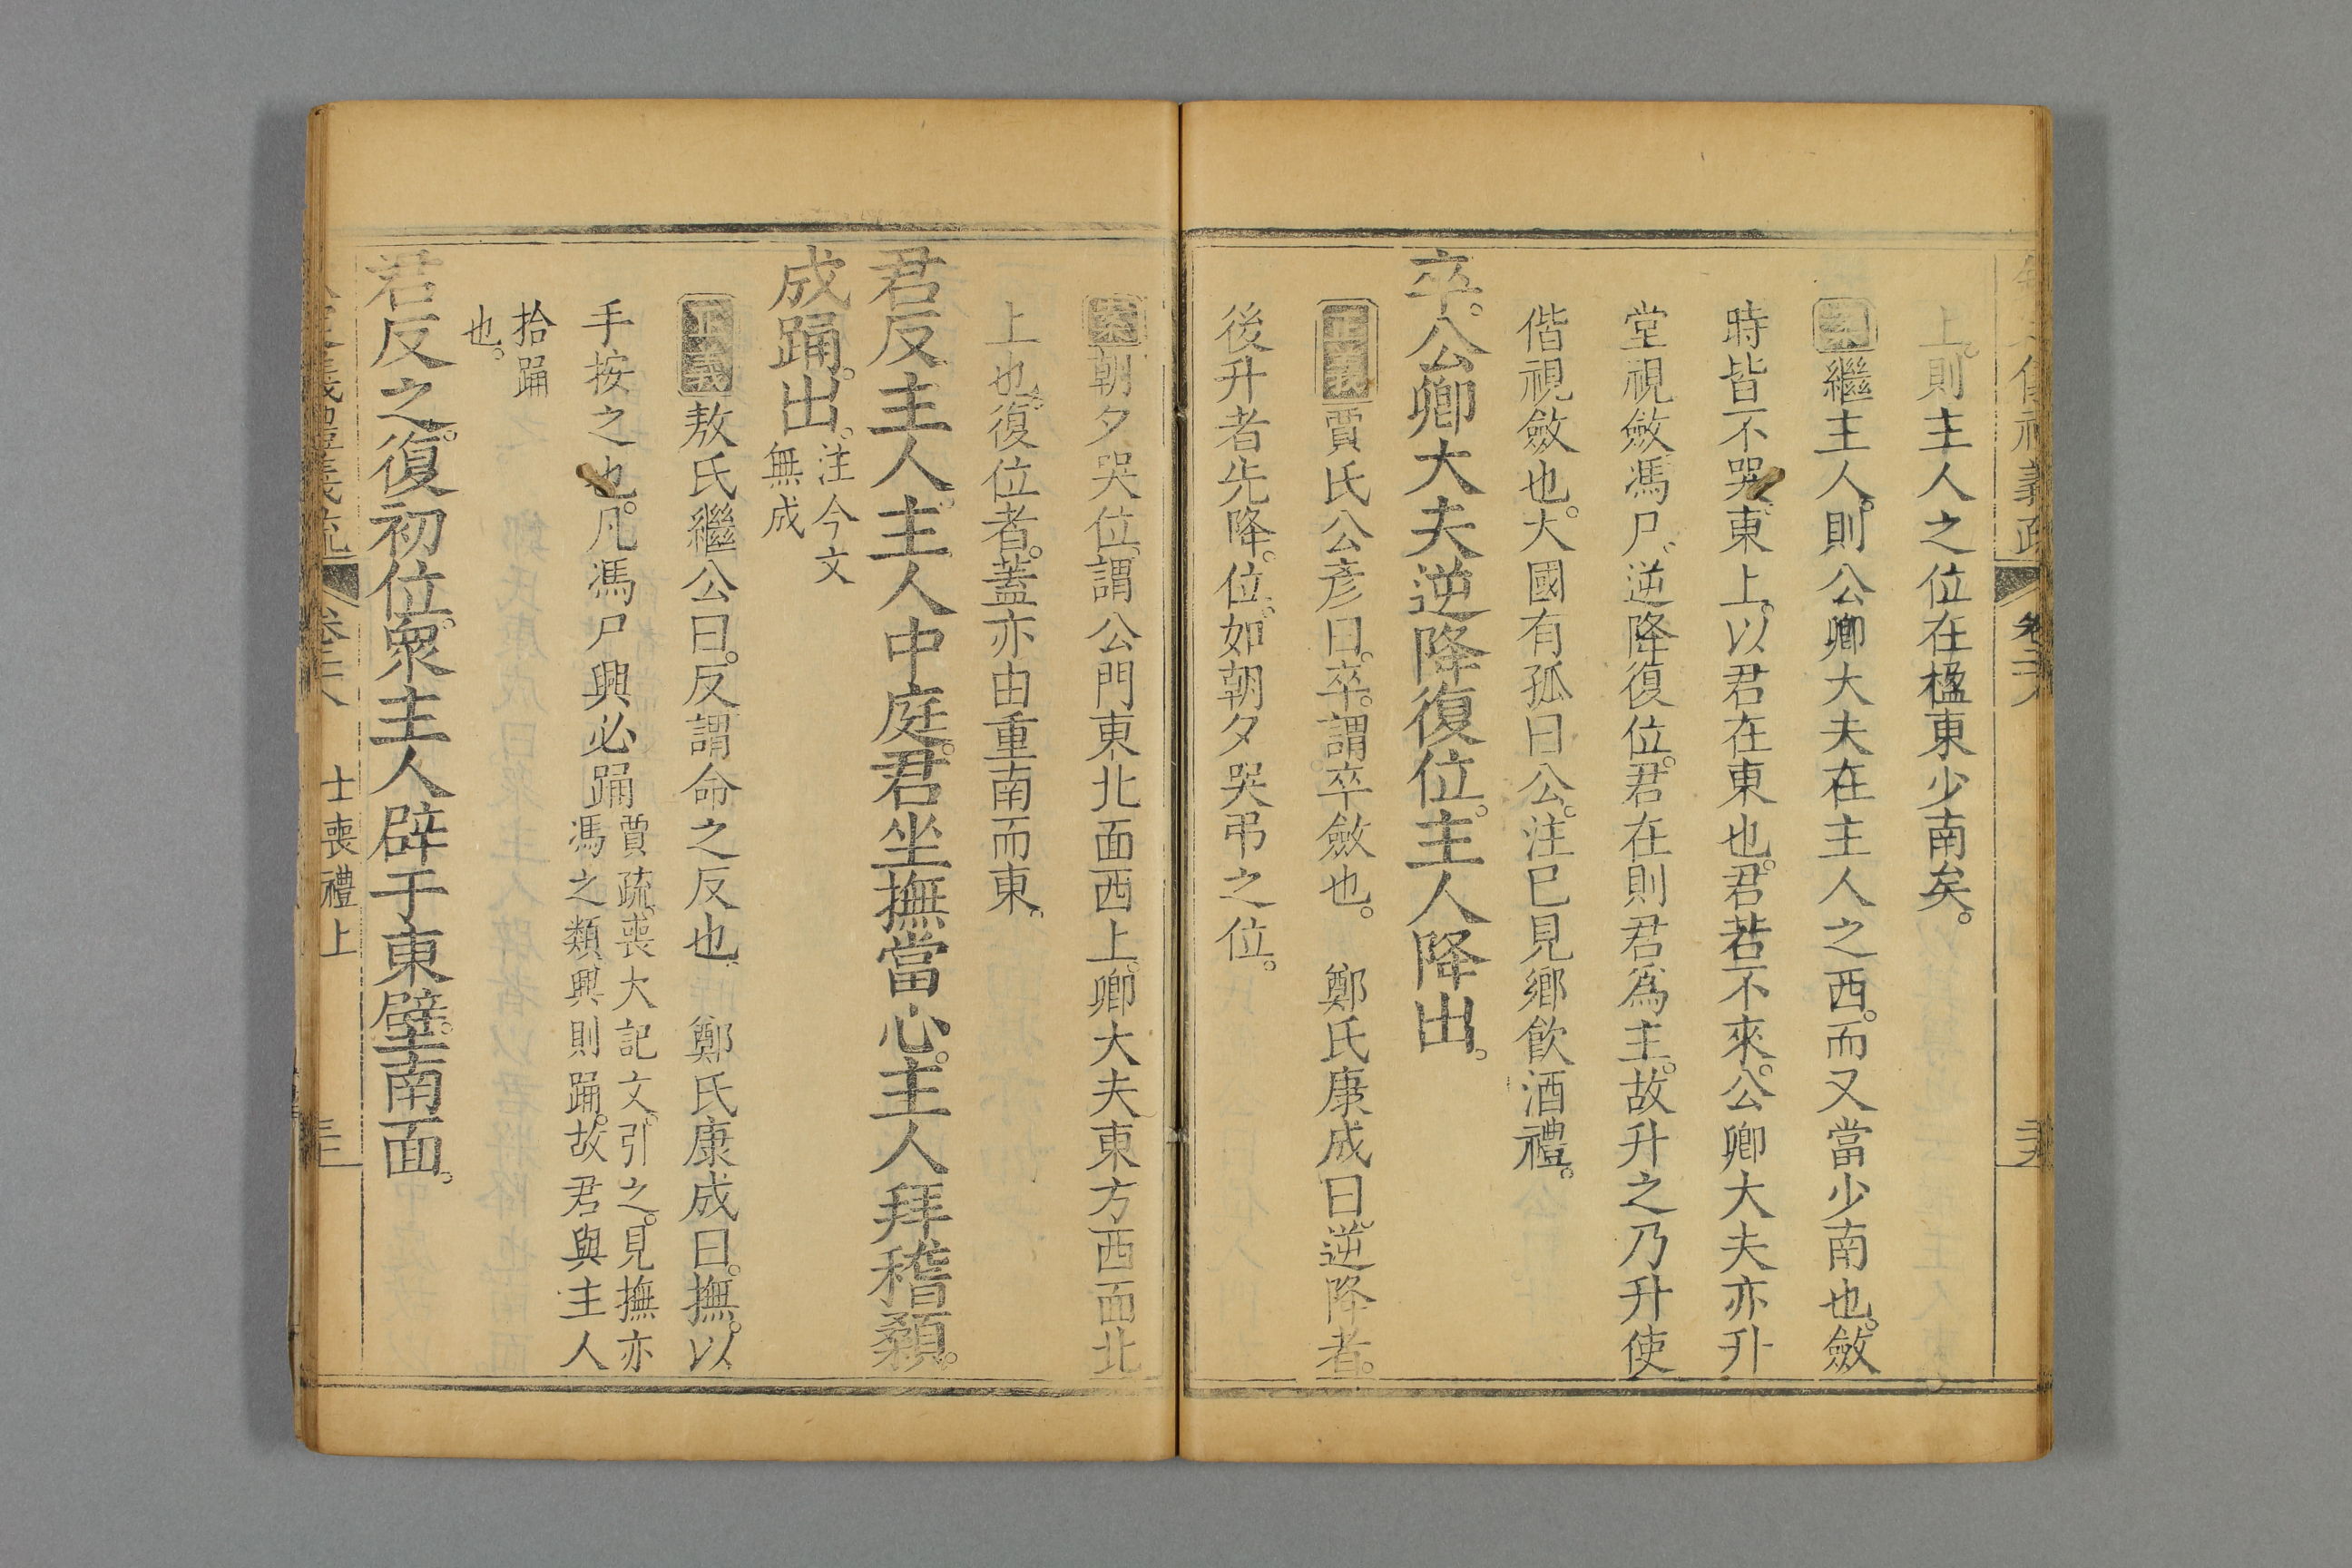 上。則主人之位在楹東少南矣。
繼主人。則公卿大夫在主人之西。而又當少南也。斂
時皆不哭。東上。以君在東也。君若不來。公卿大夫亦升
堂視斂馮尸。逆降復位。君在則君爲主。故升之乃升使
偕視斂也。大國有孤曰公。注已見鄉飲酒禮。
卒。公卿大夫逆降復位。主人降出。
正義賈氏公彥曰。卒。謂卒斂也。 鄭氏康成曰。逆降者。
後升者先降。位。如朝夕哭弔之位。
案朝夕哭位。謂公門東北面西上。卿大夫東方西面北
上也。復位者。蓋亦由重南而東。
君反主人。主人中庭。君坐撫當心。主人拜稽顙。
成踊。出。注今文
無成
正義敖氏繼公曰。反謂命之反也。 鄭氏康成曰。撫。以
手按之也。凡馮尸興必踊賈疏。喪大記文。引之。見撫亦
馮之類。興則踊。故君與主人
拾踊
也。
君反之。復初位。衆主人辟于東壁。南面。
卷三十八 士喪禮上